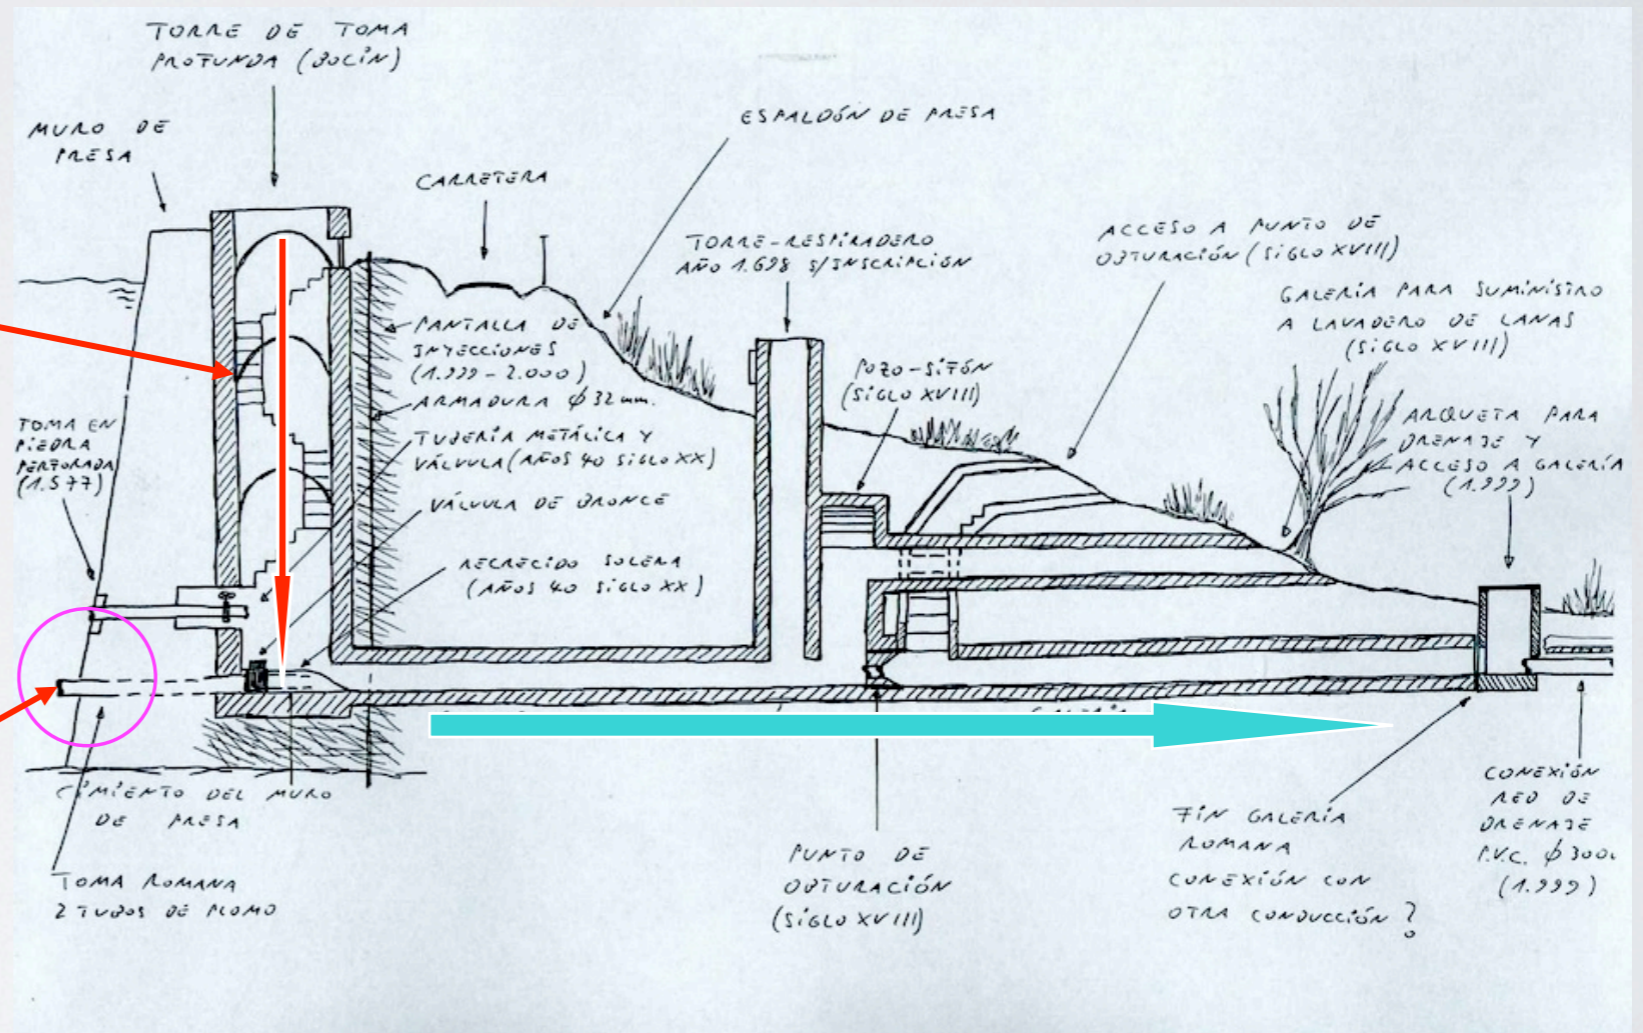 TORRE DE TOMA
PROFUNDA (BOCÍN)
MURO DE
PRESA
CARRETERA
ESPALDÓN DE PRESA
TORRE-RESPIRADERO
AÑO 1.698 S/INSCRIPCIÓN
ACCESO A PUNTO DE
OBTURACIÓN (SIGLO XVIII)
GALERÍA PARA SUMINISTRO
A LAVADERO DE LANAS
(SIGLO XVIII)
PANTALLA DE
INYECCIONES
(1.999-2.000)
ARMADURA ϕ 32 mm.
TUBERÍA METÁLICA Y
VÁLVULA (AÑOS 40 SIGLO XX)
VÁLVULA DE BRONCE
RECRECIDO SOLERA
(AÑOS 40 SIGLO XX)
POZO-SIFÓN
(SIGLO XVIII)
ARQUETA PARA
DRENAJE Y
ACCESO A GALERÍA
(1.999)
TOMA EN
PIEDRA
PERFORADA
(1.577)
CIMIENTO DEL MURO
DE PRESA
TOMA ROMANA
2 TUBOS DE PLOMO
PUNTO DE
OBTURACIÓN
(SIGLO XVIII)
FIN GALERÍA
ROMANA
CONEXIÓN CON
OTRA CONDUCCIÓN?
CONEXIÓN
RED DE
DRENAJE
P.V.C. ϕ 300
(1.999)